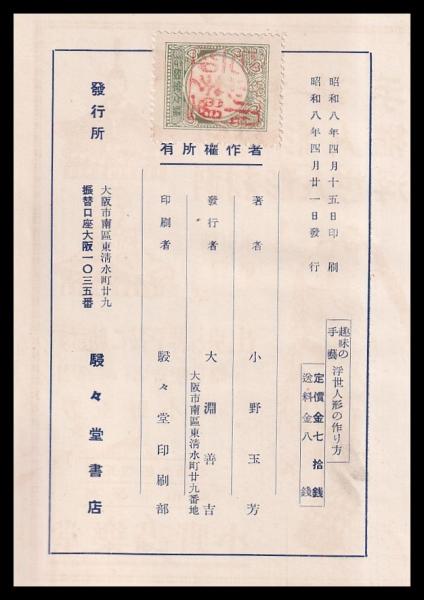 昭和八年四月十五日印刷
昭和八年四月廿一日發行
趣味の手藝
浮世人形の作り方
定價金七拾錢
送料金八錢
有所權作著
著者 小野玉芳
發行者 大淵善吉
大阪市南區東淸水町廿九番地
印刷者 駸々堂印刷部
發行所 駸々堂書店
大阪市南區東淸水町廿九
振替口座大阪一〇三五番